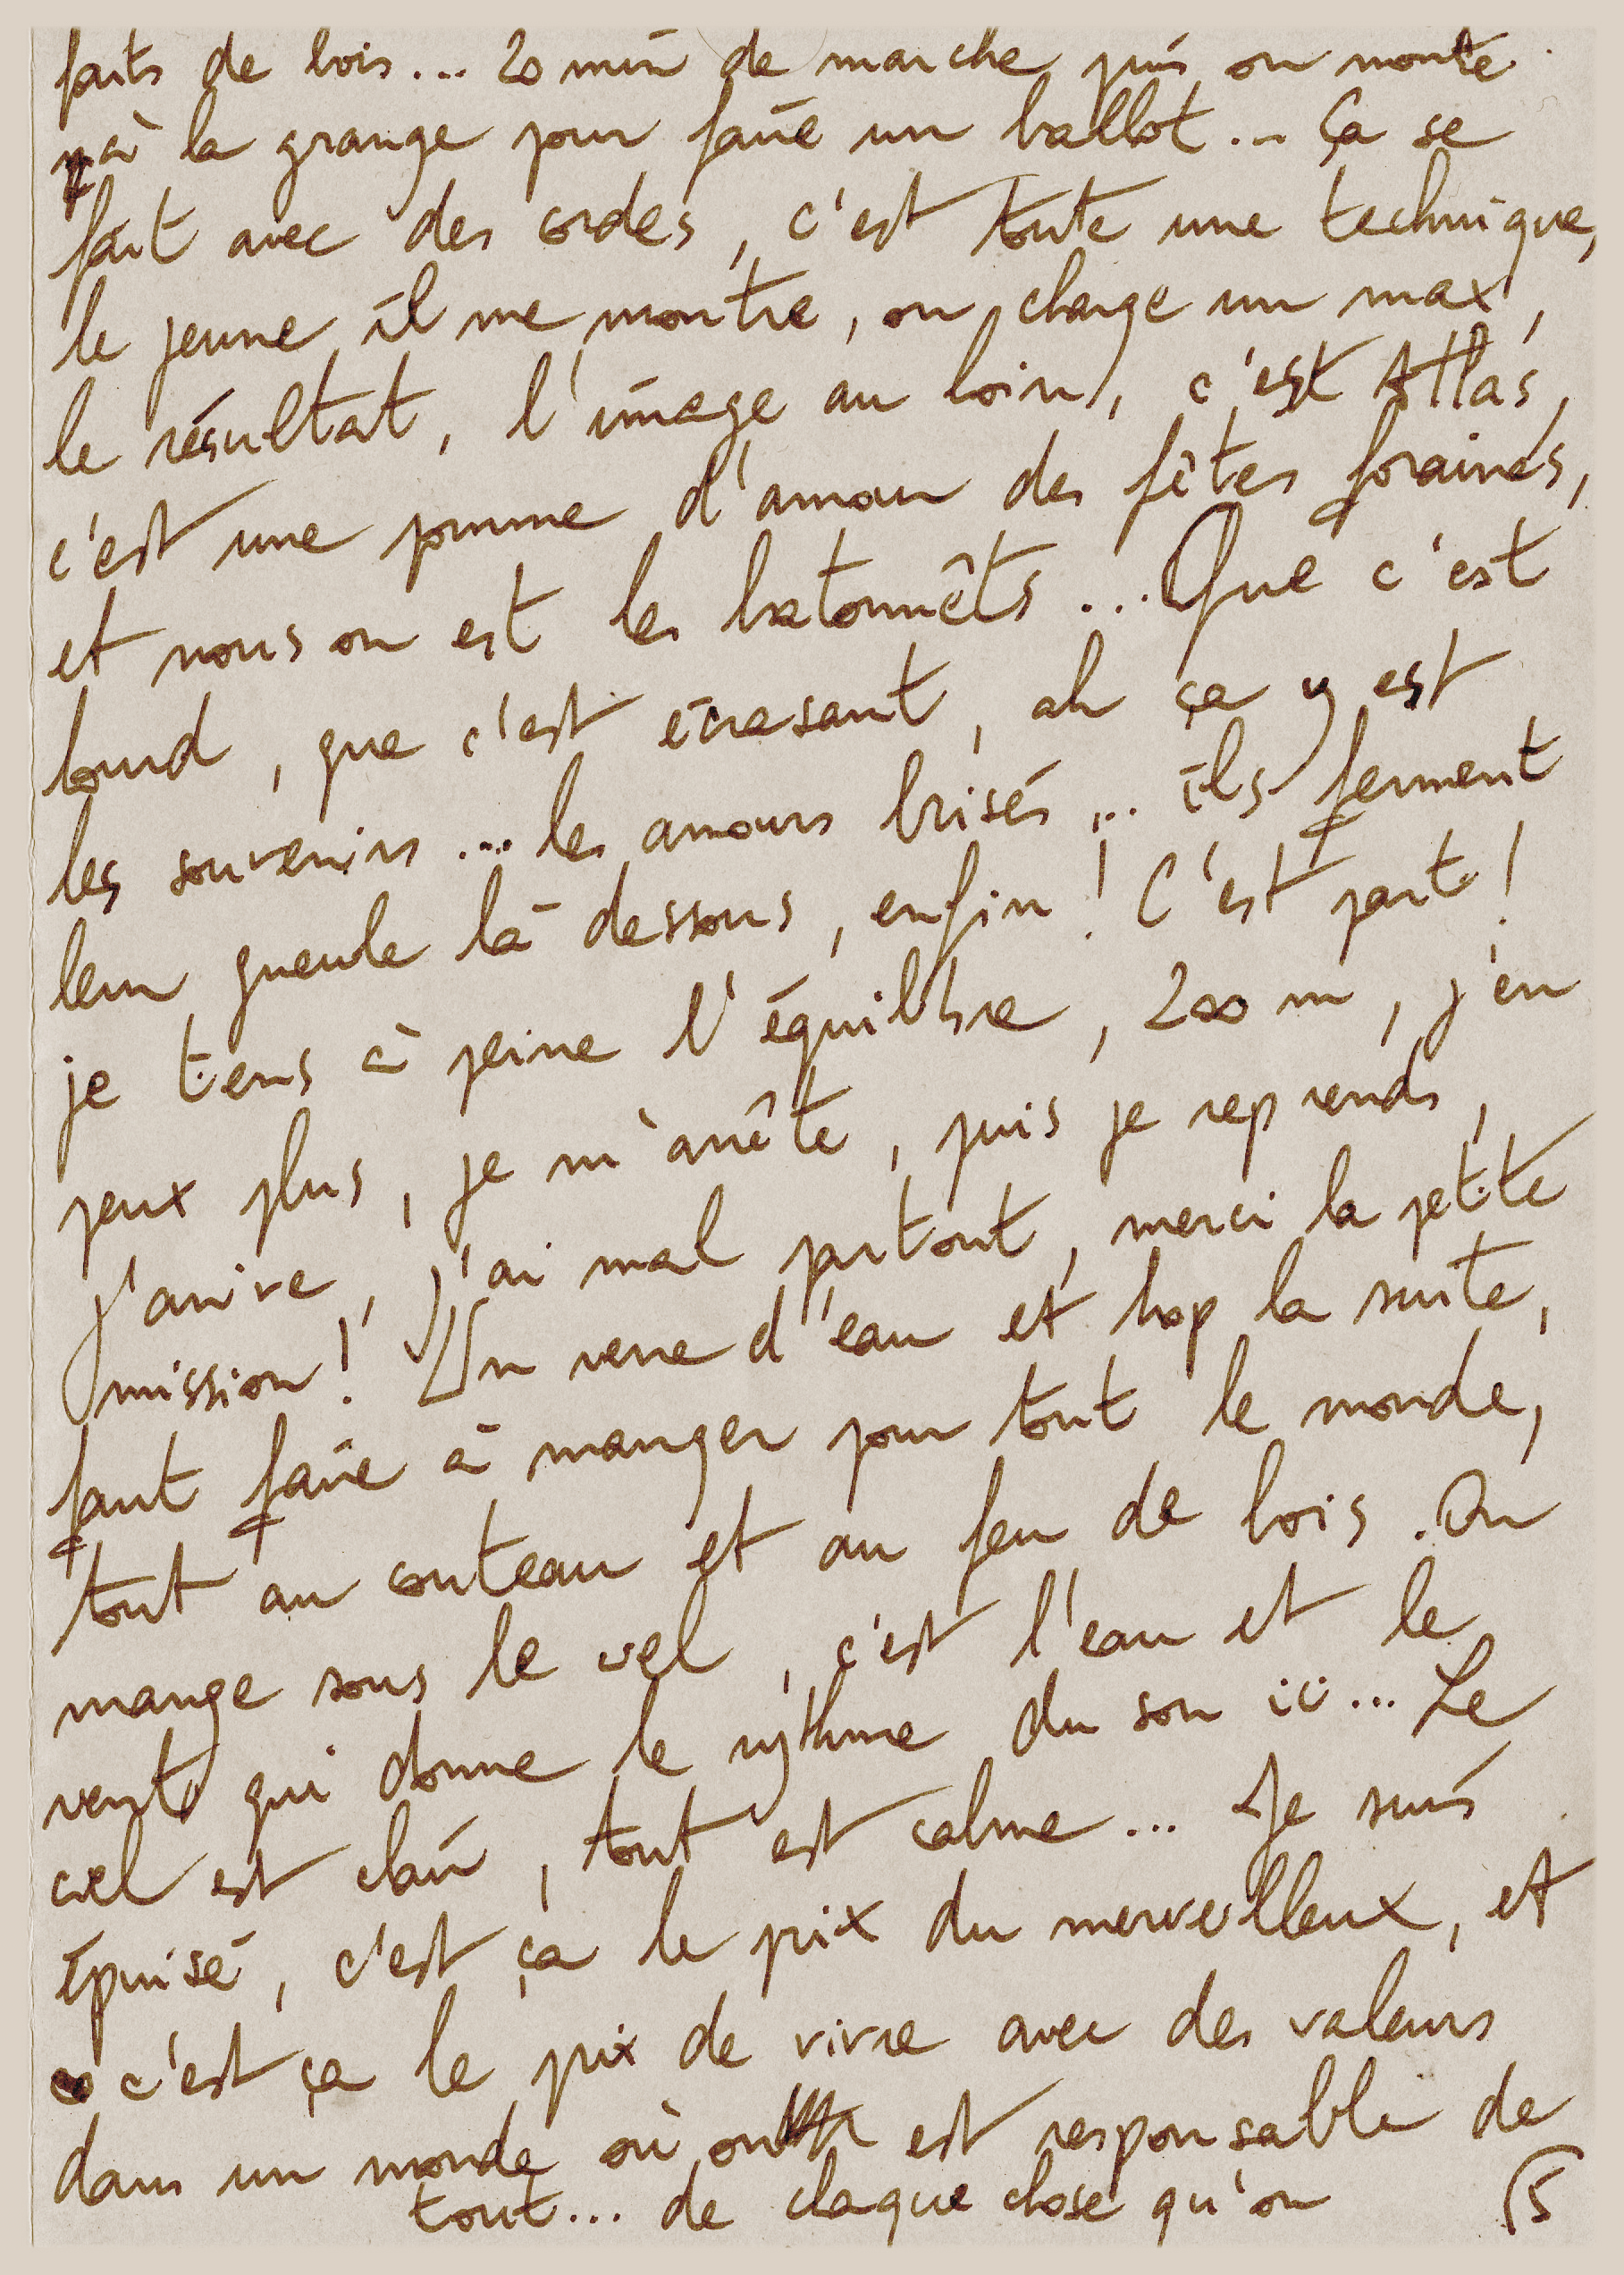 faits de bois... 20 min de marche puis on monte
à la grange pour faire un ballot... Ça se
fait avec des cordes, c'est toute une technique,
le jeune il me montre, on charge un max,
le résultat, l'image au loin, c'est Atlas,
c'est une pomme d'amour des fêtes foraines,
et nous on est les batonnêts... Que c'est
lourd, que c'est écrasant, ah ça y est
les souvenirs... les amours brisés... ils ferment
leur gueule là dessous, enfin! C'est parti!
je tiens à peine l'équilibre, 200 m, j'en
peux plus, je m'arrête, puis je reprends,
j'arrive, j'ai mal partout, merci la petite
mission! Un verre d'eau et hop la suite,
faut faire à manger pour tout le monde,
tout au couteau et au feu de bois. On
mange sous le ciel, c'est l'eau et le
vent qui donne le rythme du son ici... Le
ciel est clair, tout est calme... Je suis
épuisé, c'est ça le prix du merveilleux, et
c'est ça le prix de vivre avec des valeurs
dans un monde où on est responsable de
tout... de chaque chose qu'on
5